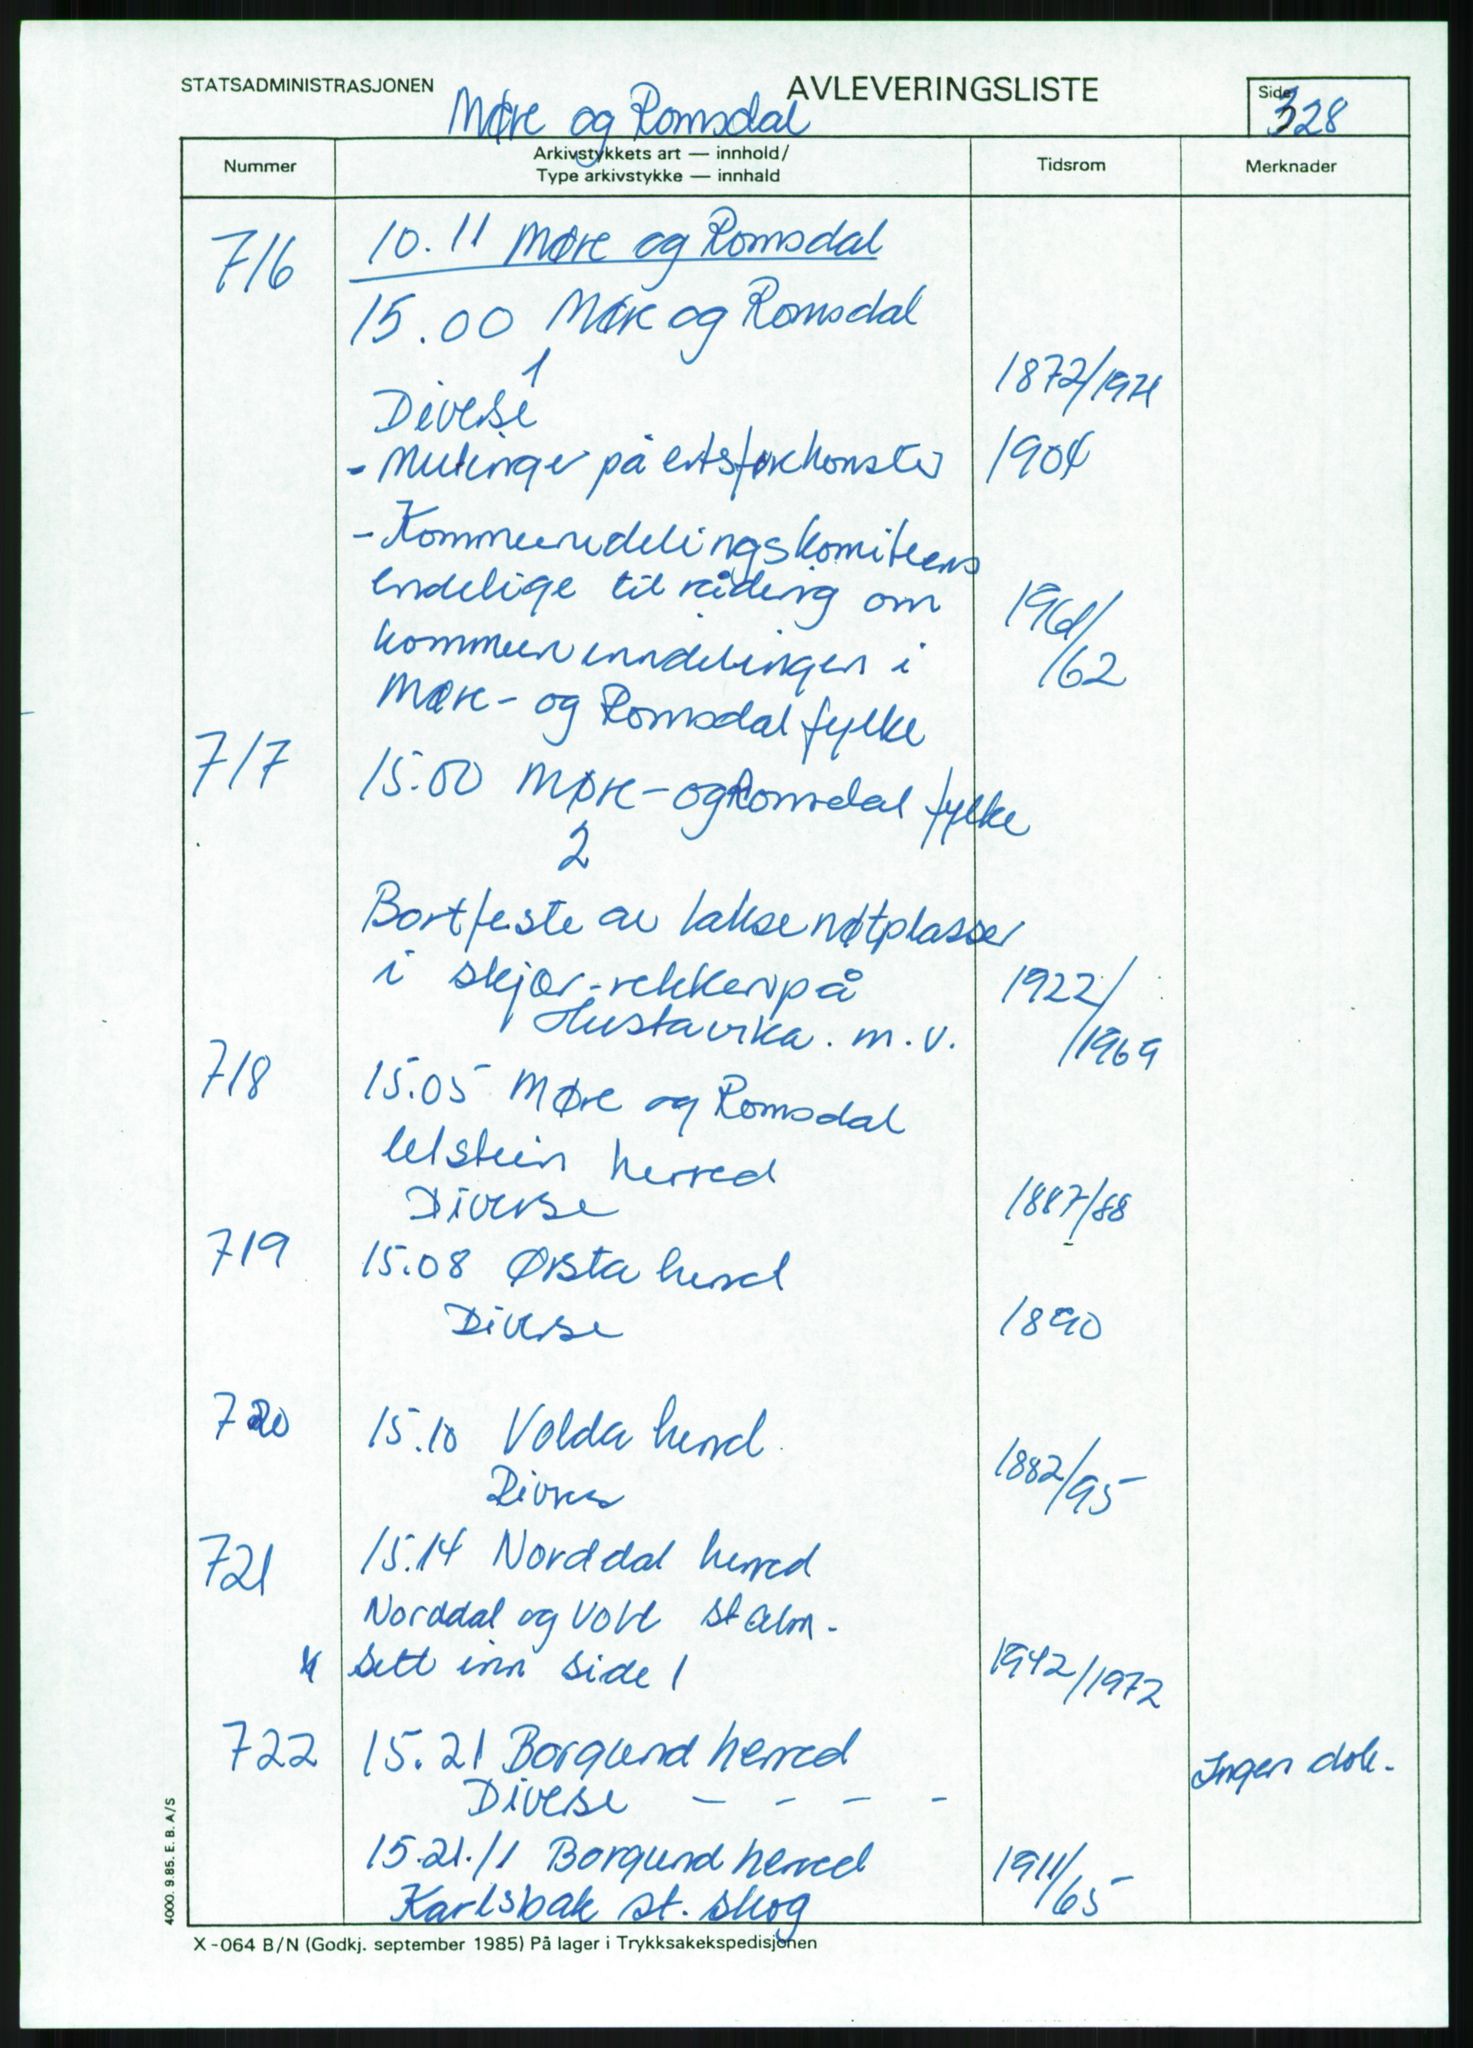 STATSADMINISTRASJONEN
AVLEVERINGSLISTE
Side
328
Møre og Romsdal
Nummer
Arkivstykkets art — innhold/
Type arkivstykke — innhald
Tidsrom
Merknader
716 10.11 Møre og Romsdal
15.00 Møre og Romsdal
1
Diverse 1872/1971
- Mutinger på ertsforekomster 1904
- Kommuneindelingskomiteens
endelige tilråding om
kommuneinndelingen i 1961/
/62
Møre- og Romsdal fylke
717 15.00 Møre- og Romsdal fylke
2
Bortfeste av laksenotplasser
i skjær-rekken på 1922/
Hustavika. m.v. /1969
718 15.05 Møre og Romsdal
herred
Diverse 1887/88
719 15.08 Ørsta herred
Diverse 1890
720 15.10 Volda herred
Diverse 1882/95
721 15.14 Norddal herred
Norddal og Vold st.alm.
sett inn side 1 1942/1972
722 15.21 Borgund herred
Diverse - - - - Ingen dok.
15.21./1 Borgund herred 1911/65
Karlsbak st. skog
4000. 9.85. E. B. A/S
X-064 B/N (Godkj. september 1985) På lager i Trykksakekspedisjonen